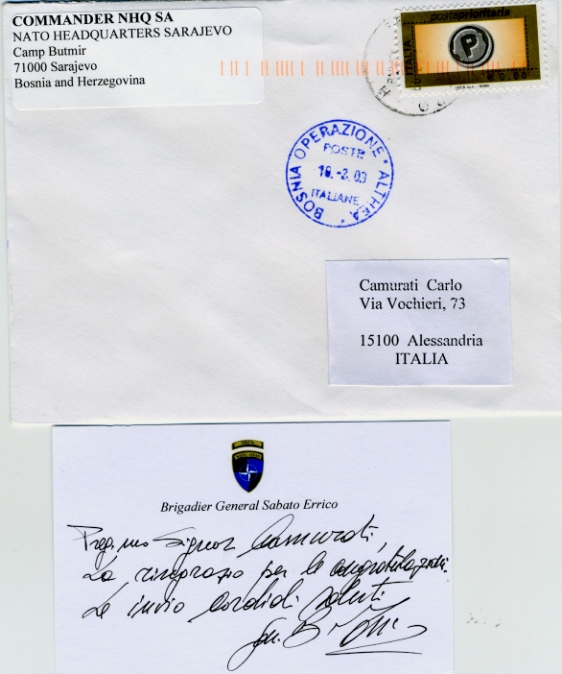 COMMANDER NHQ SA
NATO HEADQUARTERS SARAJEVO
Camp Butmir
71000 Sarajevo
Bosnia and Herzegovina
posteprioritario
ITALIA
P
BOSNIA OPERAZIONE * ALTHEA *
POSTE
ITALIANE
Camurati Carlo
Via Vochieri, 73
15100 Alessandria
ITALIA
Brigadier General Sabato Errico
Preg.mo Signor Camurati,
La ringrazio per le congratulazioni.
Le invio Cordiali Saluti